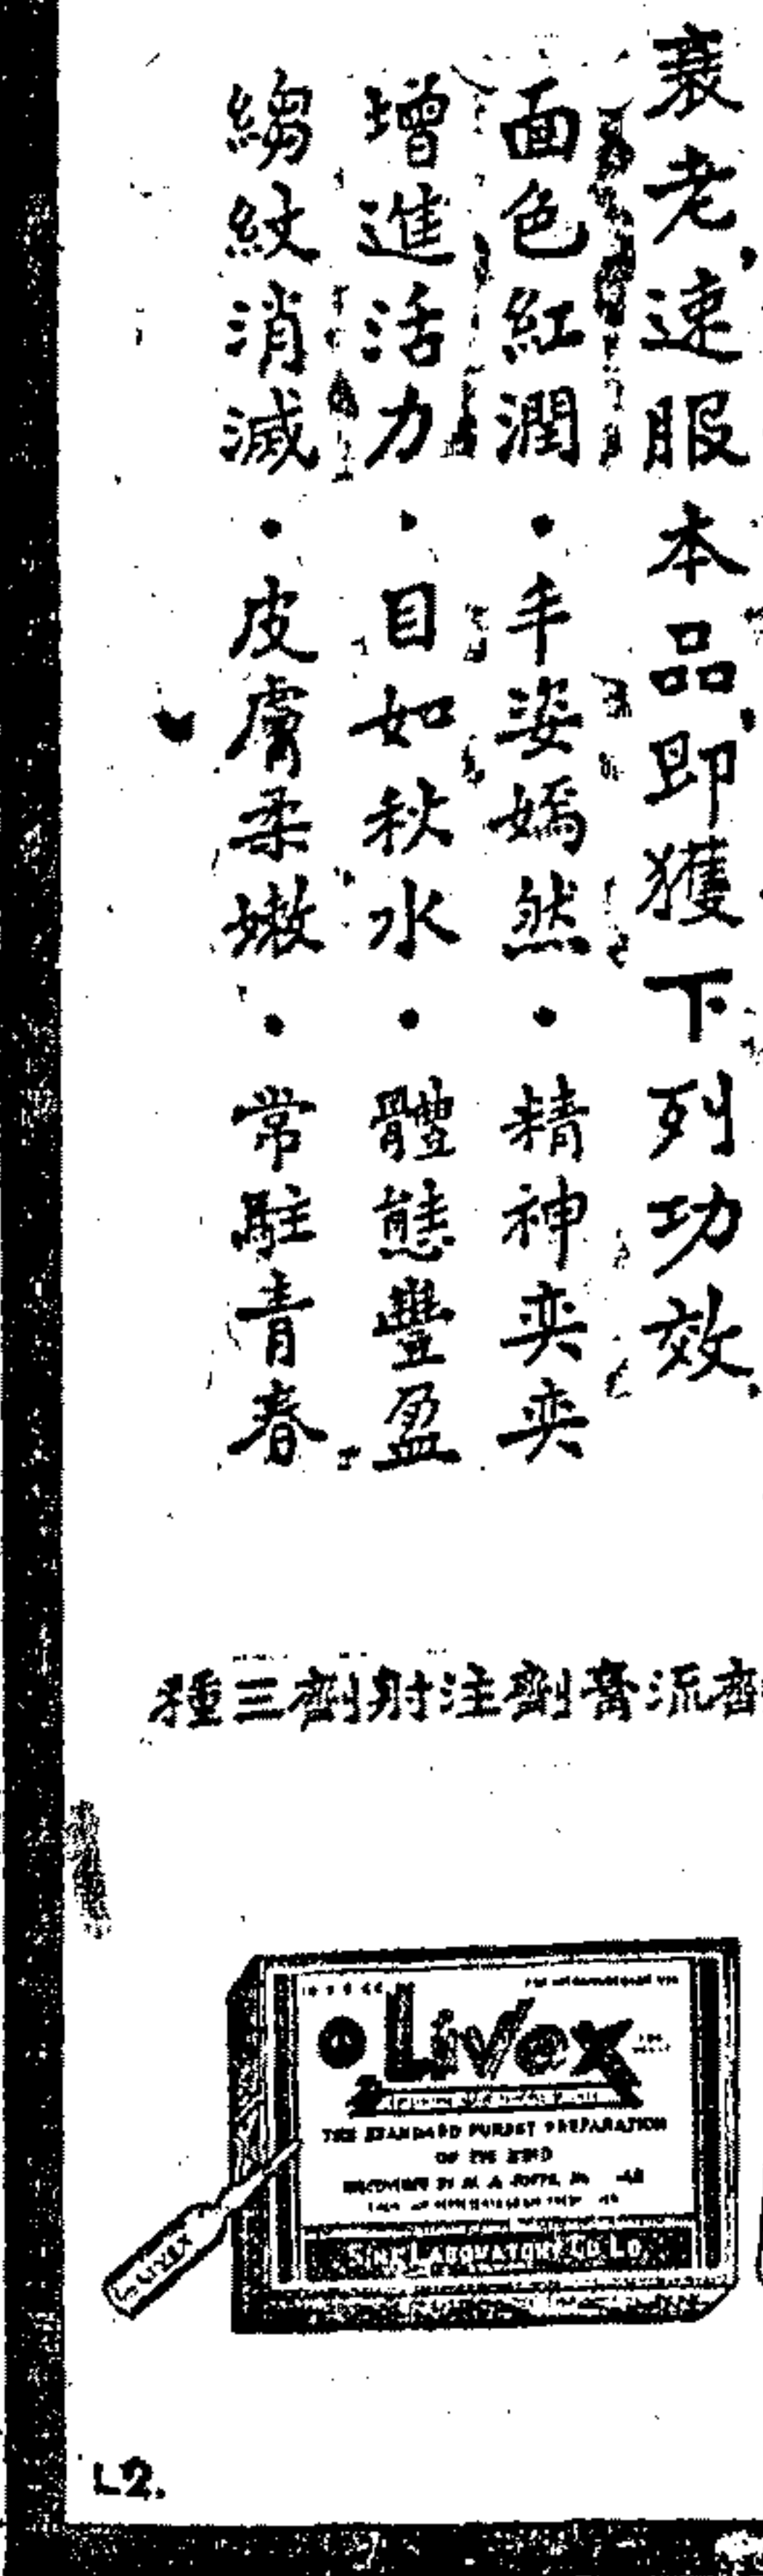 衰老速服本品即獲下列功效
面色紅潤・手姿嫣然・精神奕奕
增進活力・目如秋水・體態豐盈
縐紋消滅・皮膚柔嫩・常駐青春
流膏劑注射劑三種
Livax
THE STANDARD PUREST PREPARATION
OF ITS KIND
SINE LABORATORY CO LD
LIVAX
L2.